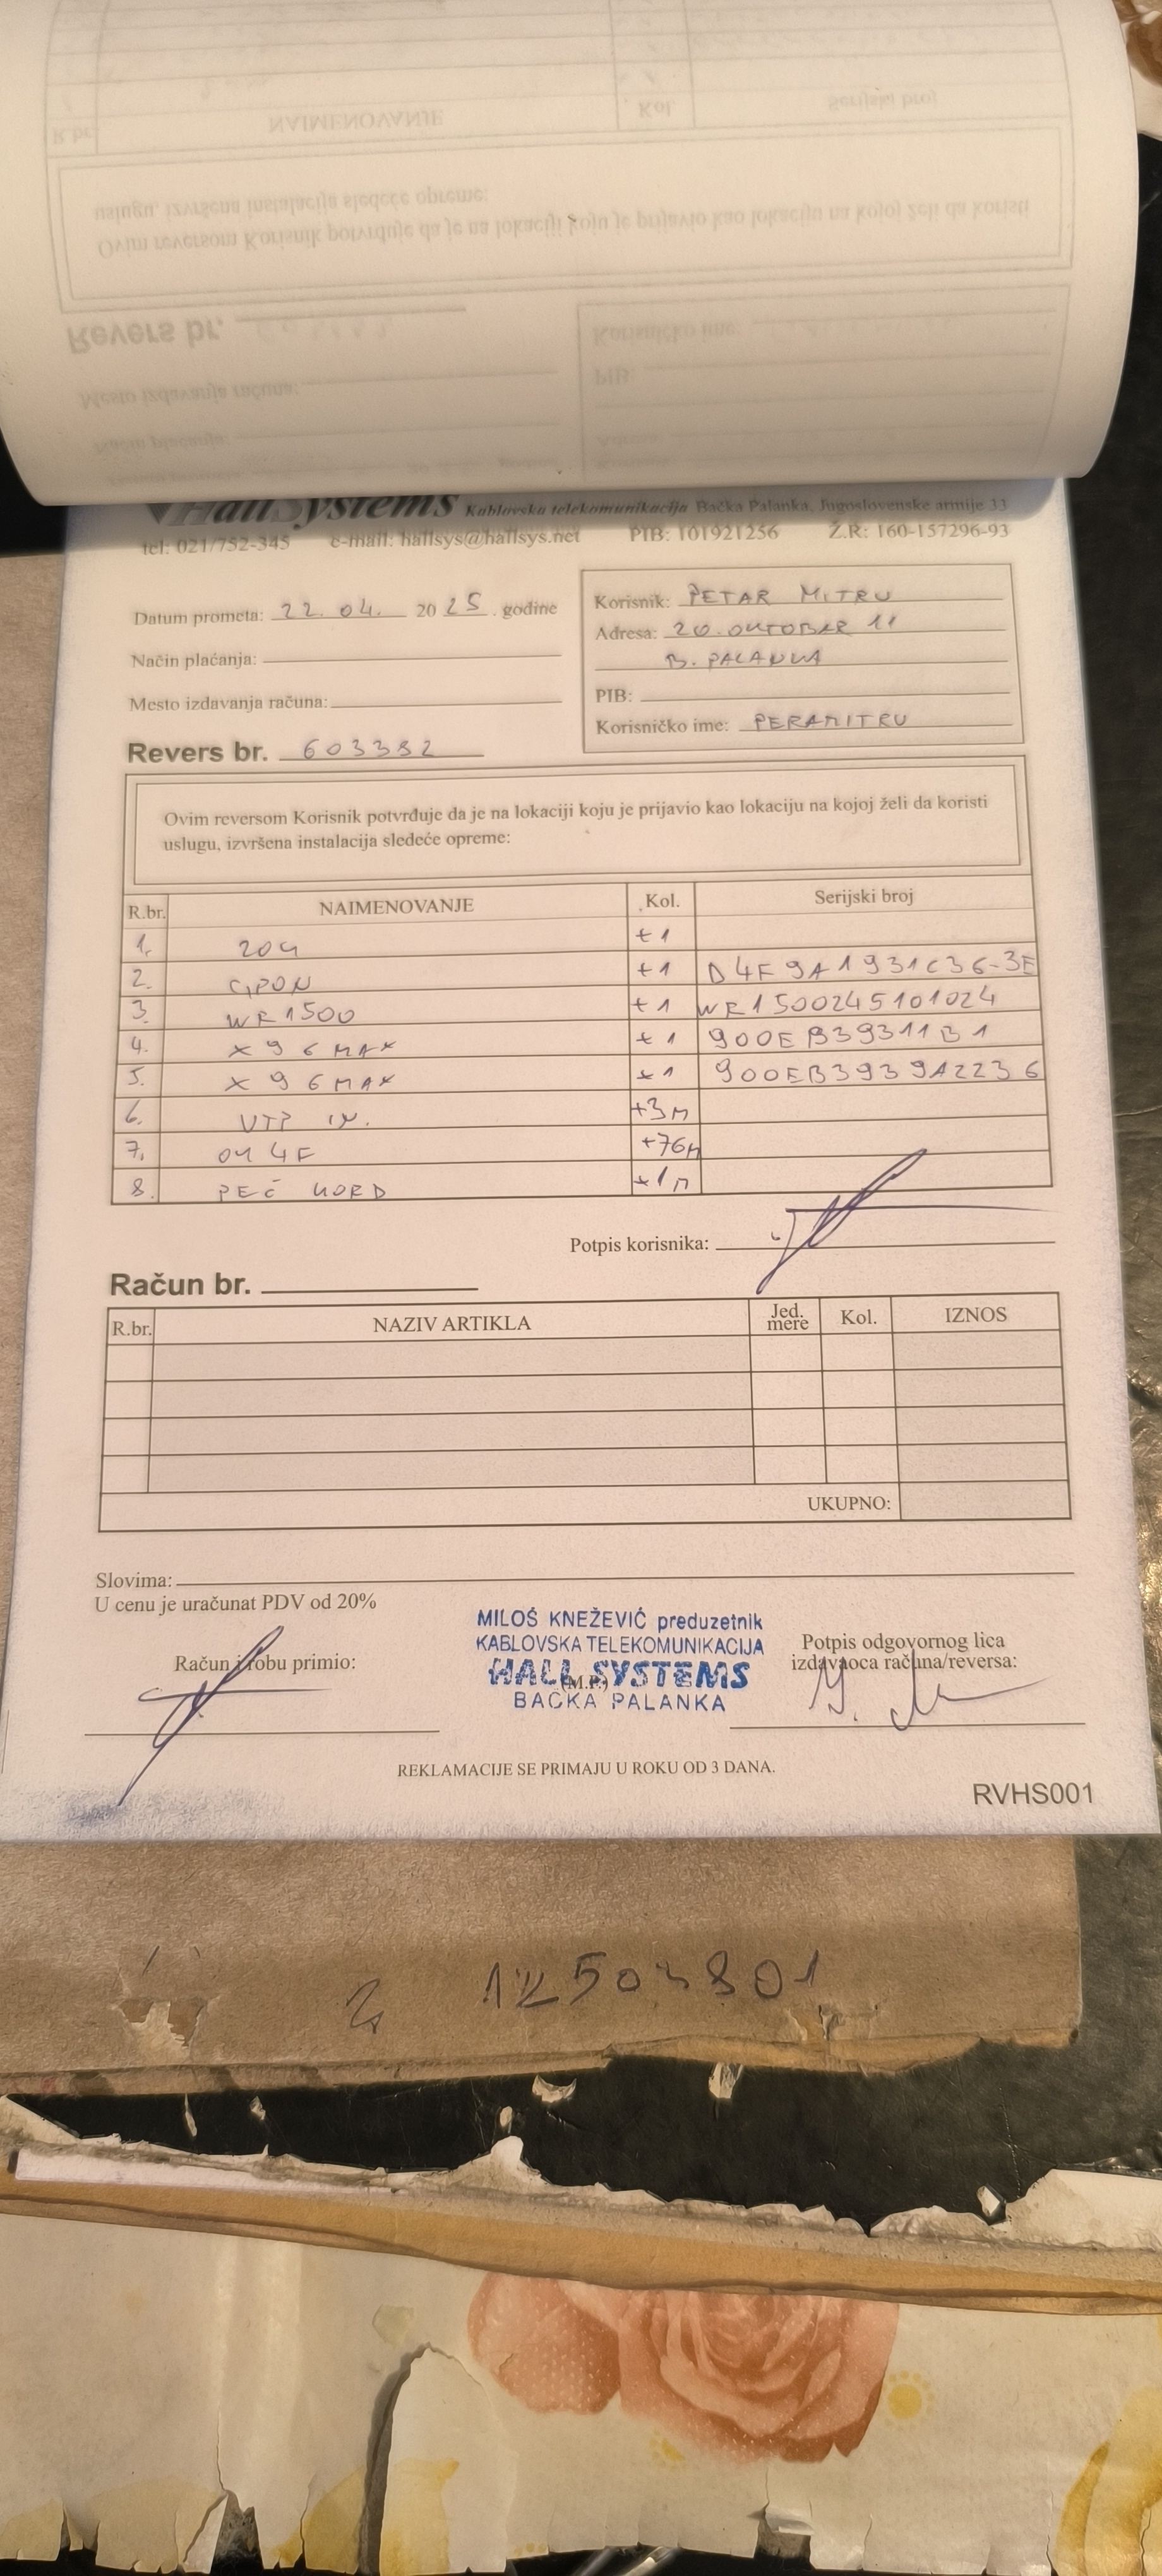 Hall Systems Kablovska telekomunikacija Bačka Palanka, Jugoslovenske armije 33
tel: 021/752-345 e-mail: hallsys@hallsys.net PIB: 101921256 Ž.R: 160-157296-93
Datum prometa: 22. 04. 2025. godine
Način plaćanja:
Mesto izdavanja računa:
Korisnik: PETAR MITRU
Adresa: 20. OKTOBAR 11
B. PALANKA
PIB:
Korisničko ime: PERAMITRU
Revers br. 603382
Ovim reversom Korisnik potvrđuje da je na lokaciji koju je prijavio kao lokaciju na kojoj želi da koristi
uslugu, izvršena instalacija sledeće opreme:
R.br. NAIMENOVANJE Kol. Serijski broj
1. +1
2. GPON +1 D4F9A1931C36-3E
3. WR1500 +1 WR1500245101024
4. X96MAX +1 900EB39311B1
5. X96MAX +1 900EB3939A2236
6. UTP +3M
7. OK 4F +76M
8. PEČ KORD +1M
Potpis korisnika:
Račun br.
R.br. NAZIV ARTIKLA Jed. mere Kol. IZNOS
UKUPNO:
Slovima:
U cenu je uračunat PDV od 20%
Račun i robu primio:
MILOŠ KNEŽEVIĆ preduzetnik
KABLOVSKA TELEKOMUNIKACIJA
HALL SYSTEMS
(M.P.)
BAČKA PALANKA
Potpis odgovornog lica
izdavaoca računa/reversa:
REKLAMACIJE SE PRIMAJU U ROKU OD 3 DANA.
RVHS001